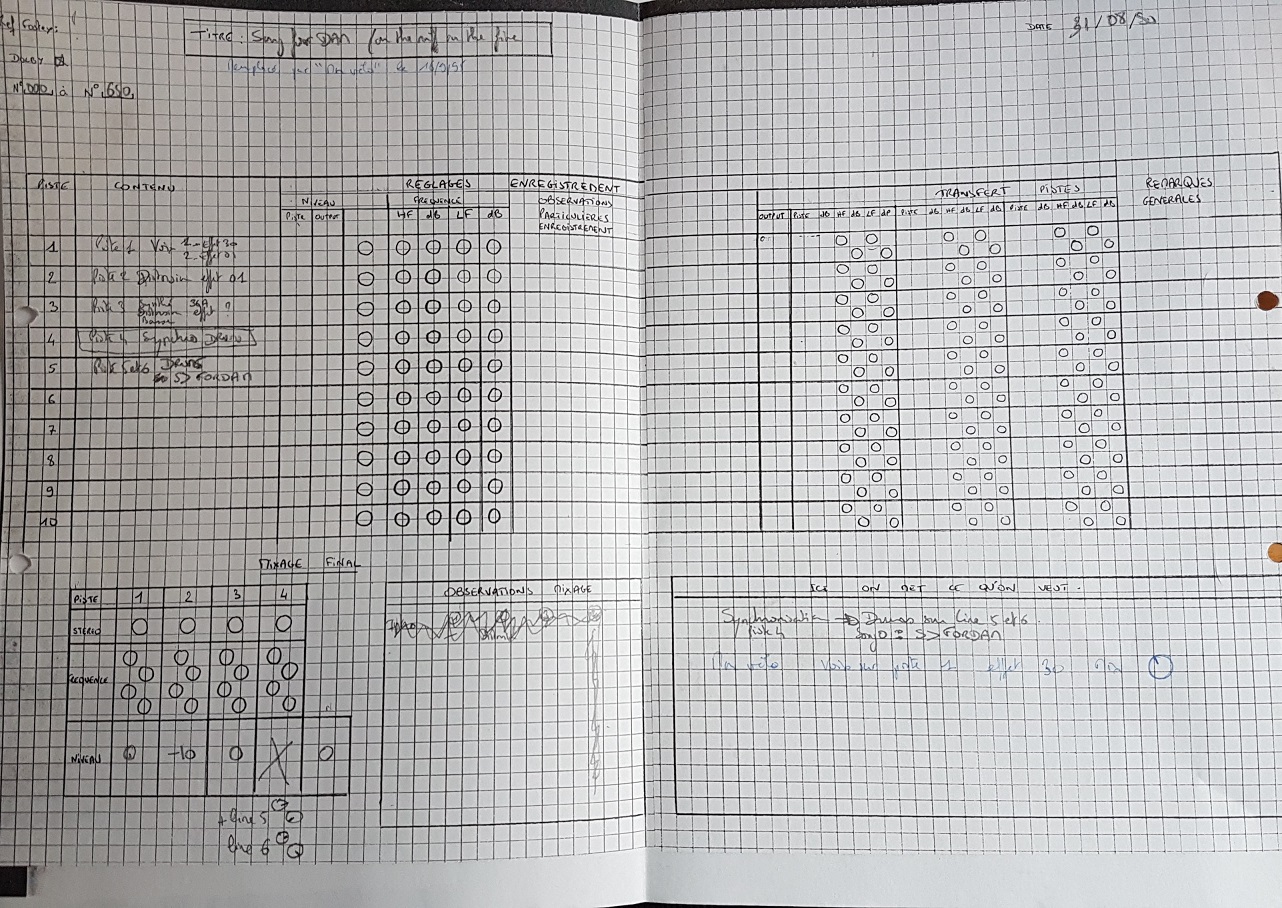 TITRE : Song for DAN (on the on the fire
DATE 31/08/90
Dolby
N°.000, à N°.650,
PISTE CONTENU REGLAGES ENREGISTREMENT
NIVEAU FREQUENCE OBSERVATIONS
Piste output HF dB LF dB PARTICULIERES
ENREGISTREMENT
TRANSFERT PISTES REMARQUES
GENERALES
OUTPUT Piste dB HF dB LF dB Piste dB HF dB LF dB Piste dB HF dB LF dB
1 Piste 1 Voix 1-Effet 30
2-Effet 01
2 Piste 2 effet 01
3 Piste 3 effet ?
4 Piste 4 Synchro DRUMS
5 Piste 5et6 DRUMS
S> FORDAN
6
7
8
9
10
MIXAGE FINAL
PISTE 1 2 3 4
STEREO
FREQUENCE
NIVEAU 0 -10 0 X 0
+ line 5
line 6
OBSERVATIONS MIXAGE
ICI ON MET CE QU'ON VEUT.
Synchronisation → Drums sur line 5 et 6.
piste 4 song 0 : S> FORDAN
Mon vélo Voix sur piste 1 effet 30